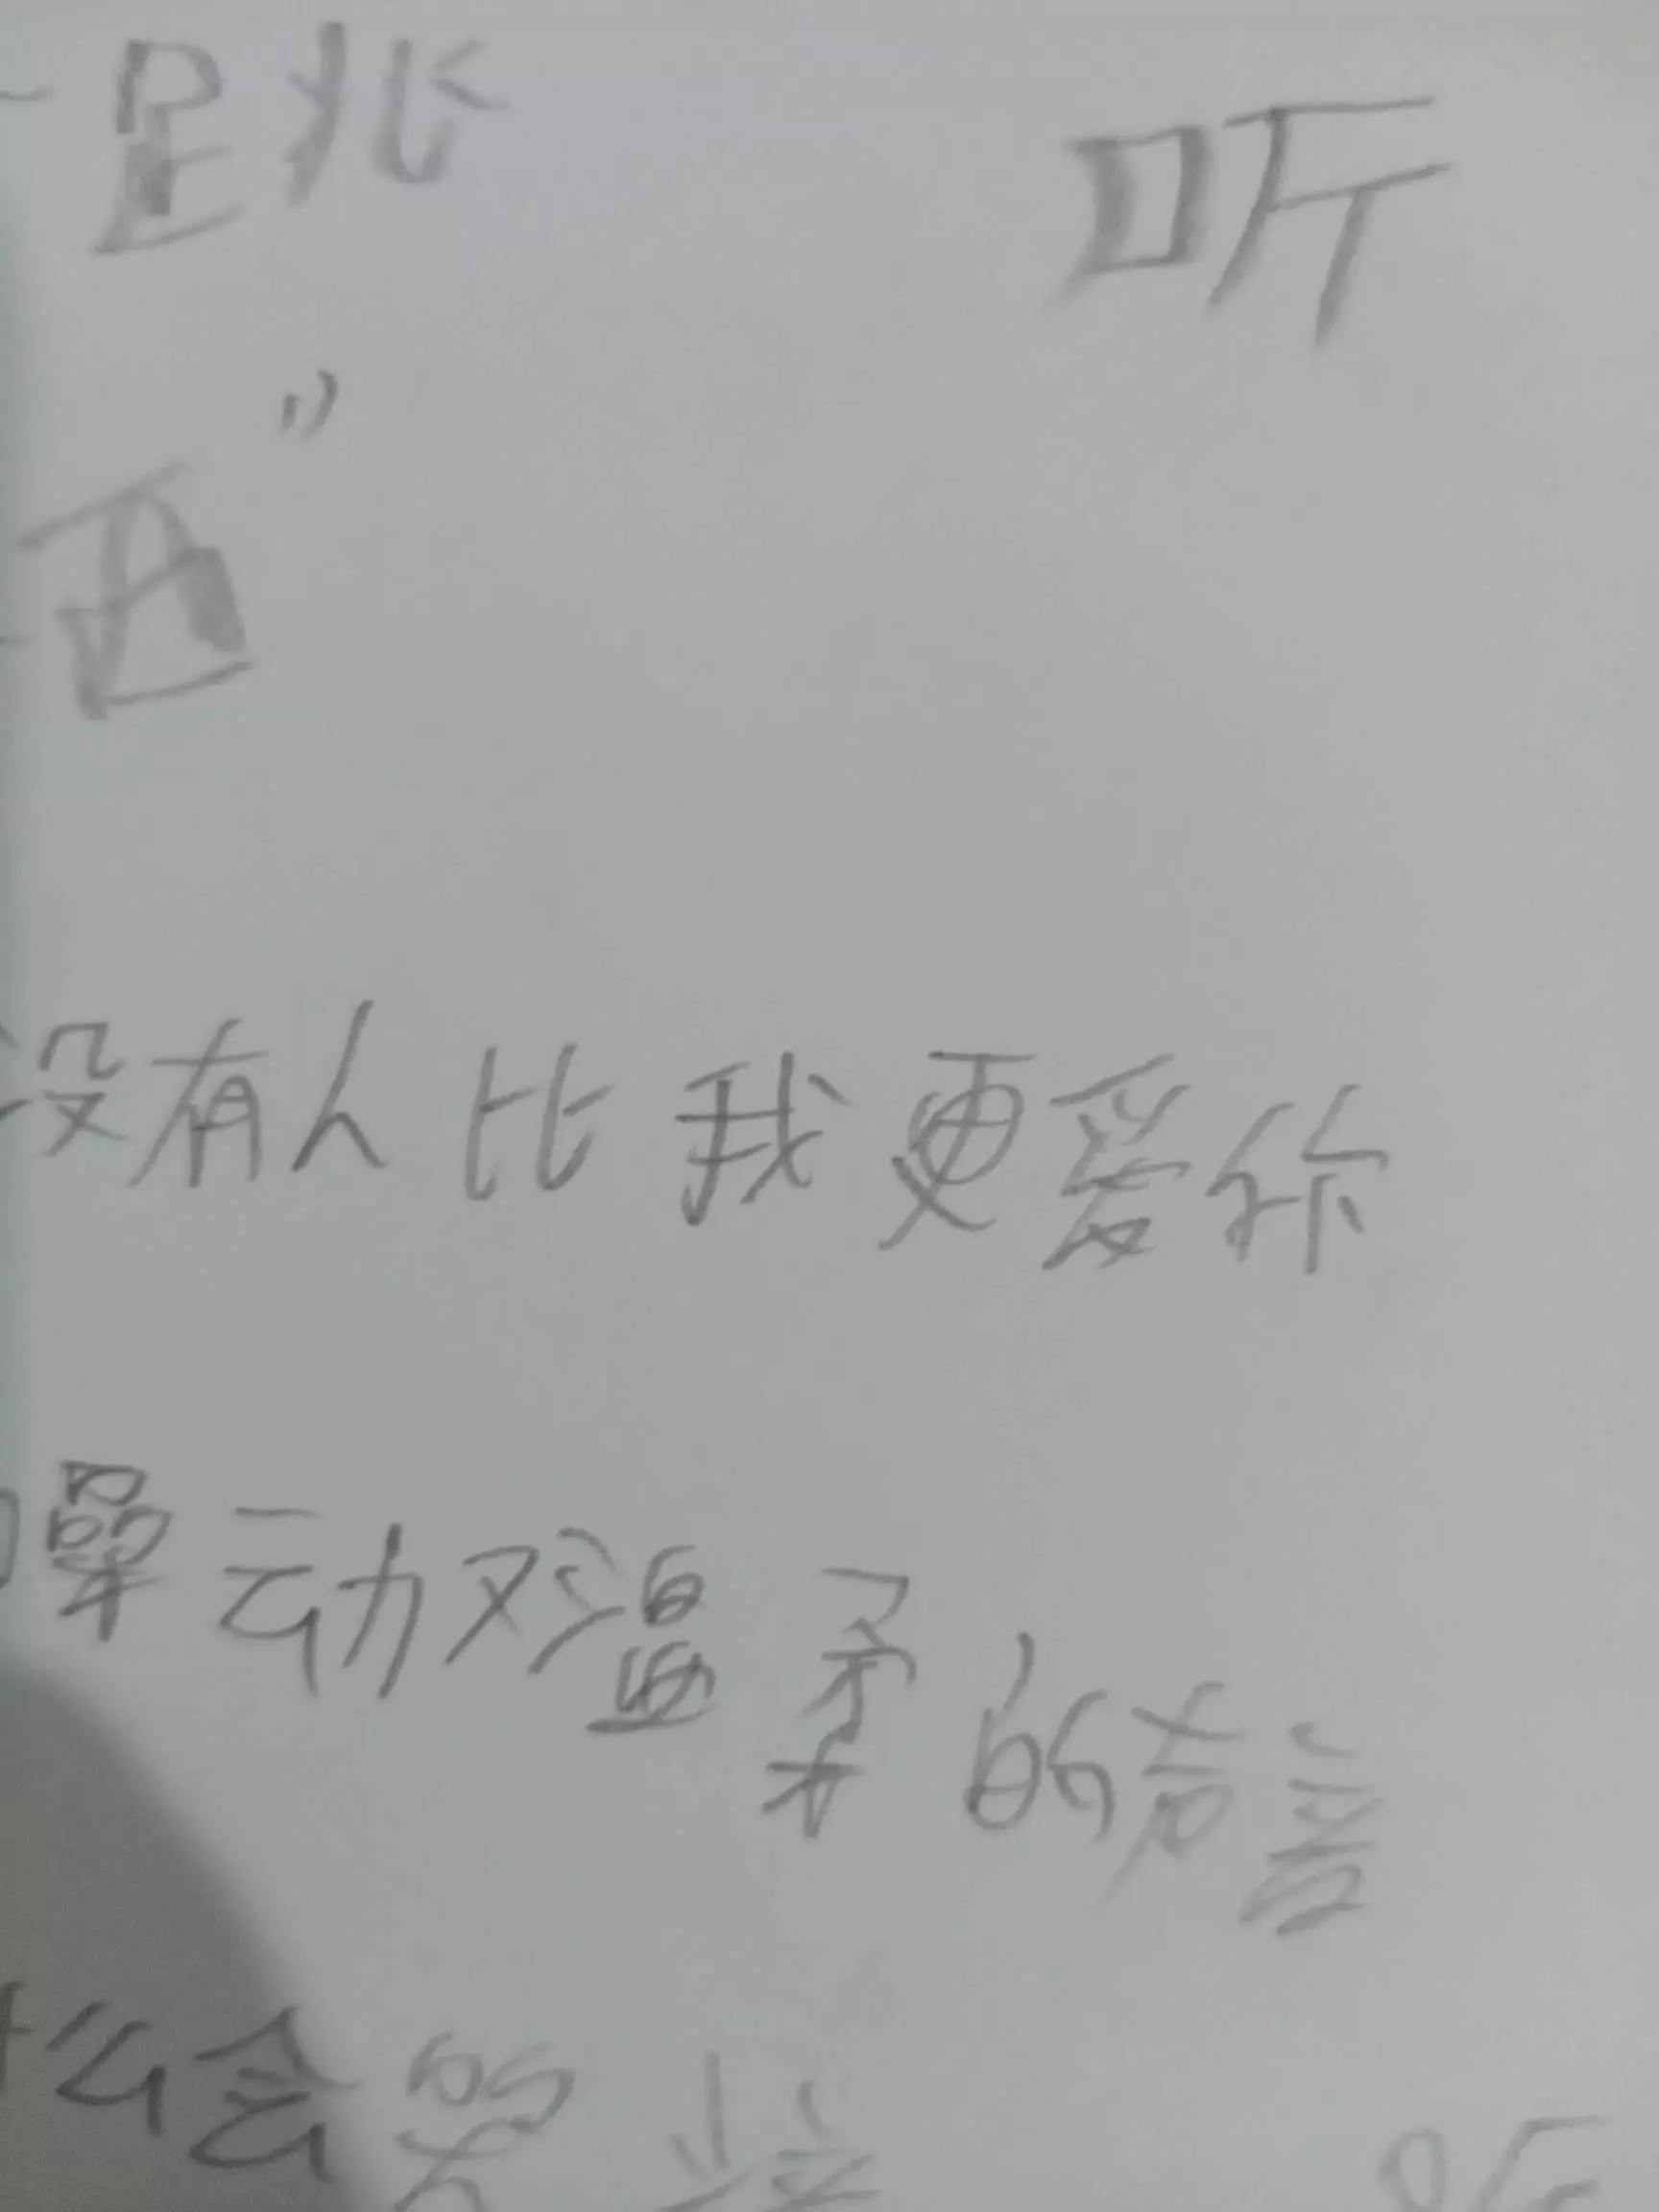 跳 听
"
西
没有人比我更爱你
噪动双温柔的声音
什么会哭